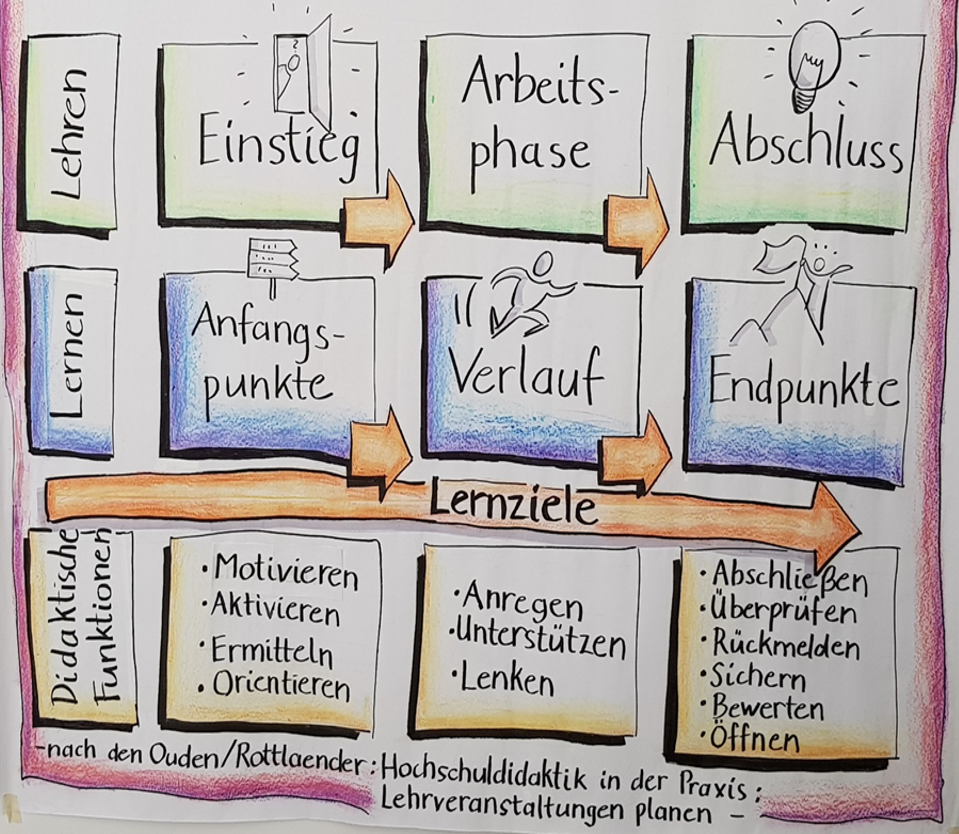 Lehren
Einstieg
Arbeits-
phase
Abschluss
Lernen
Anfangs-
punkte
Verlauf
Endpunkte
Lernziele
Didaktische
Funktionen
• Motivieren
• Aktivieren
• Ermitteln
• Orientieren
• Anregen
• Unterstützen
• Lenken
• Abschließen
• Überprüfen
• Rückmelden
• Sichern
• Bewerten
• Öffnen
– nach den Ouden/Rottlaender: Hochschuldidaktik in der Praxis:
Lehrveranstaltungen planen –